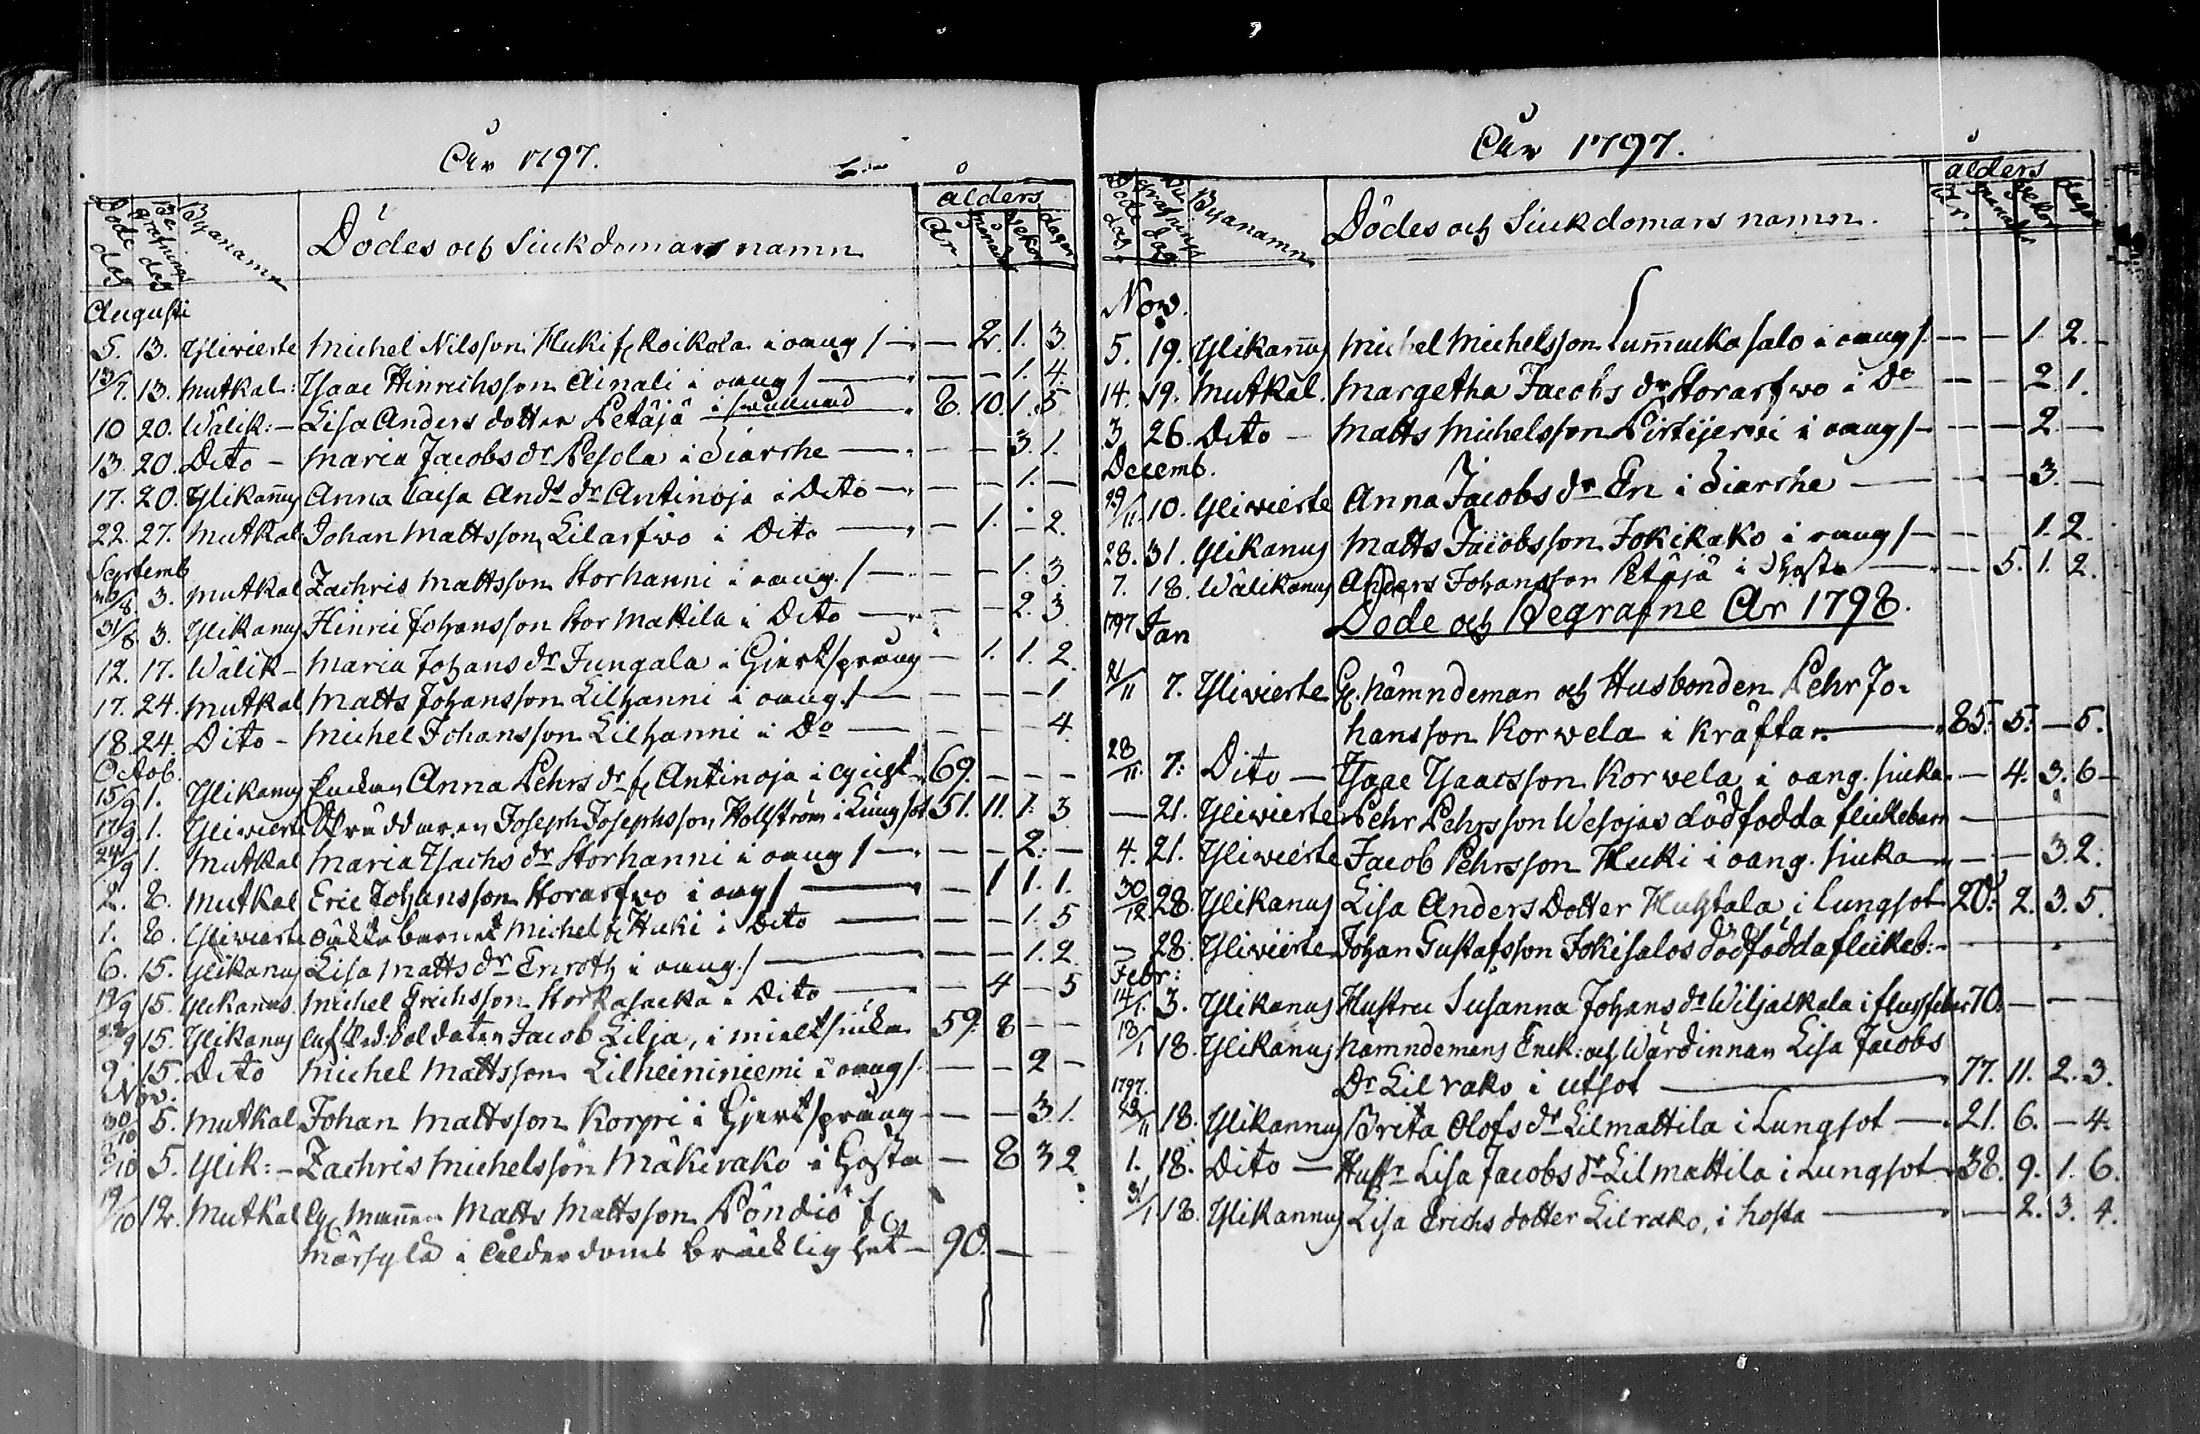 År 1797.
Döde dag Begrafnings dag Byanamn Dödes och Siukdomars namn ålders År månad wekor dagar
Augusti
5. 13. Ylivieste Michel Nilsson Huki f Koikola i oang s. — — 2. 1. 3.
13/7 13. Mutkal: Isaac Hinrichsson Ainali i oang s — — — 1. 4.
10 20. Wälik: — Lisa Anders dotter Petäjä i 8. 10. 1. 5.
13. 20. Dito — Maria Jacobs dr Pesola i Diarrhe — — — 3. 1.
17. 20. Ylikannus Anna Caisa Ands dr Antinoja i Dito — — — 1. —
22. 27. Mutkal Johan Mattsson Lilarfwo i Dito — — 1. — 2.
Septemb
/8 3. Mutkal Zachris Mattsson Storhanni i oang. s — — — 1. 3.
31/8 3. Ylikanus Hinric Johansson Stormattila i Dito — — — 2. 3.
12. 17. Wälik — Maria Johans dr Jungala i Hiertsprång — 1. 1. 2.
17. 24. Mutkal Matts Johansson Lilhanni i oang. s — — — — 1
18. 24. Dito — Michel Johansson Lilhanni i Do — — — — 4.
Octob.
15/9 1. Ylikanus Enckan Anna Pehrs dr f Antinoja i gickt 69. — — —
17/9 1. Ylivieste Joseph Josephsson Hollström i Lungsot 51. 11. 1. 3
24/9 1. Mutkal Maria Isachs dr Storhanni i oang s — — — 2. —
2. 8. Mutkal Eric Johansson Storarfwo i oang s — — 1 1. 1.
1. 8. Ylivieste oäkta barnet Michel f Huki i Dito — — — 1. 5
6. 15. Ylikanus Lisa Matts dr Enroth i oang. s — — — 1. 2.
19/9 15. Ylikanus. Michel Erichsson Storkasacka i Dito — — 4 — 5
/9 15. Ylikanus Afsked: Soldaten Jacob Lilja, i mieltsiuka 59. 8 — —
9. 15. Dito Michel Mattsson Lilheininiemi i oang s. — — 2 —
Nov.
30/10 5. Mutkal Johan Mattsson Korpi i Hiertsprång — — — 3 1.
/10 5. Ylik: — Zachris Michelsson Mäkirako i Hosta — 8 3 2
19/10 12. Mutkal Matts Mattsson Pöndiö f
Märsylä i Ålderdoms bräcklighet — 90. — —
År 1797.
Döde dag Begrafnings dag Byanamn Dödes och Siukdomars namn. ålders År. månad wekor dagar
Nov.
5. 19. Ylikanus Michel Michelsson Lummukasalo i oang s. — — 1. 2.
14. 19. Mutkal. Margetha Jacobs dr Storarfwo i Do — — 2 1.
3. 26. Dito — Matts Michelsson Pirtijerwi i oang s — — — 2. —
Decemb.
29/11. 10. Ylivieste Anna Jacobs dr En i Diarrhe — — — 3. —
28. 31. Ylikanus Matts Jacobsson Jokirako i oang s — — — 1. 2.
7. 18. Wälikanus Anders Johansson Petäjä i Hosta — — 5. 1. 2.
Döde och Begrafne År 1798.
1797 Jan
21/11 7. Ylivieste Nämndeman och Husbonden Pehr Jo-
hansson Korwela i kräftan — 85. 5. — 5.
28/11. 7. Dito — Isaac Isaacsson Korvela i oang. siuka — 4. 3. 6 —
— 21. Ylivieste Pehr Pehrsson Wesojas dödfödda flickebarn —
4. 21. Ylivieste Jacob Pehrsson Huki i oang. siuka — — — 3. 2.
30/12 28. Ylikanus Lisa Anders Dotter Huhtala i Lungsot 20. 2. 3. 5.
— 28. Ylivieste Johan Gustafsson Jokisalos dödfödda flickeb: —
Febr:
14/1. 3. Ylikanus Hustru Susanna Johans dr Wiljackala i flussfeber 70. — — —
13/1 18. Ylikanus Nämndemans Enck: och Wärdinnan Lisa Jacobs
Dr Lilrako i utsot — 77. 11. 2. 3.
1797.
29/11 18. Ylikannus Brita Olofs dr Lilmattila i Lungsot — 21. 6. — 4.
1. 18. Dito — Hustr Lisa Jacobs dr Lilmattila i Lungsot 38. 9. 1. 6.
31/1 18. Ylikannus Lisa Erichs dotter Lilrako, i hosta — — 2. 3. 4.